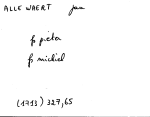 ALLEWAERT jan
fs pieter
fs michiel
(1713) 327,65